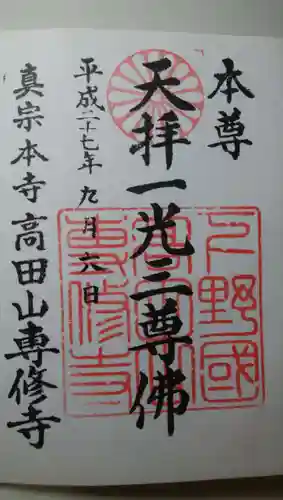 本尊
天拝一光三尊佛
平成二十七年九月六日
真宗本寺高田山専修寺